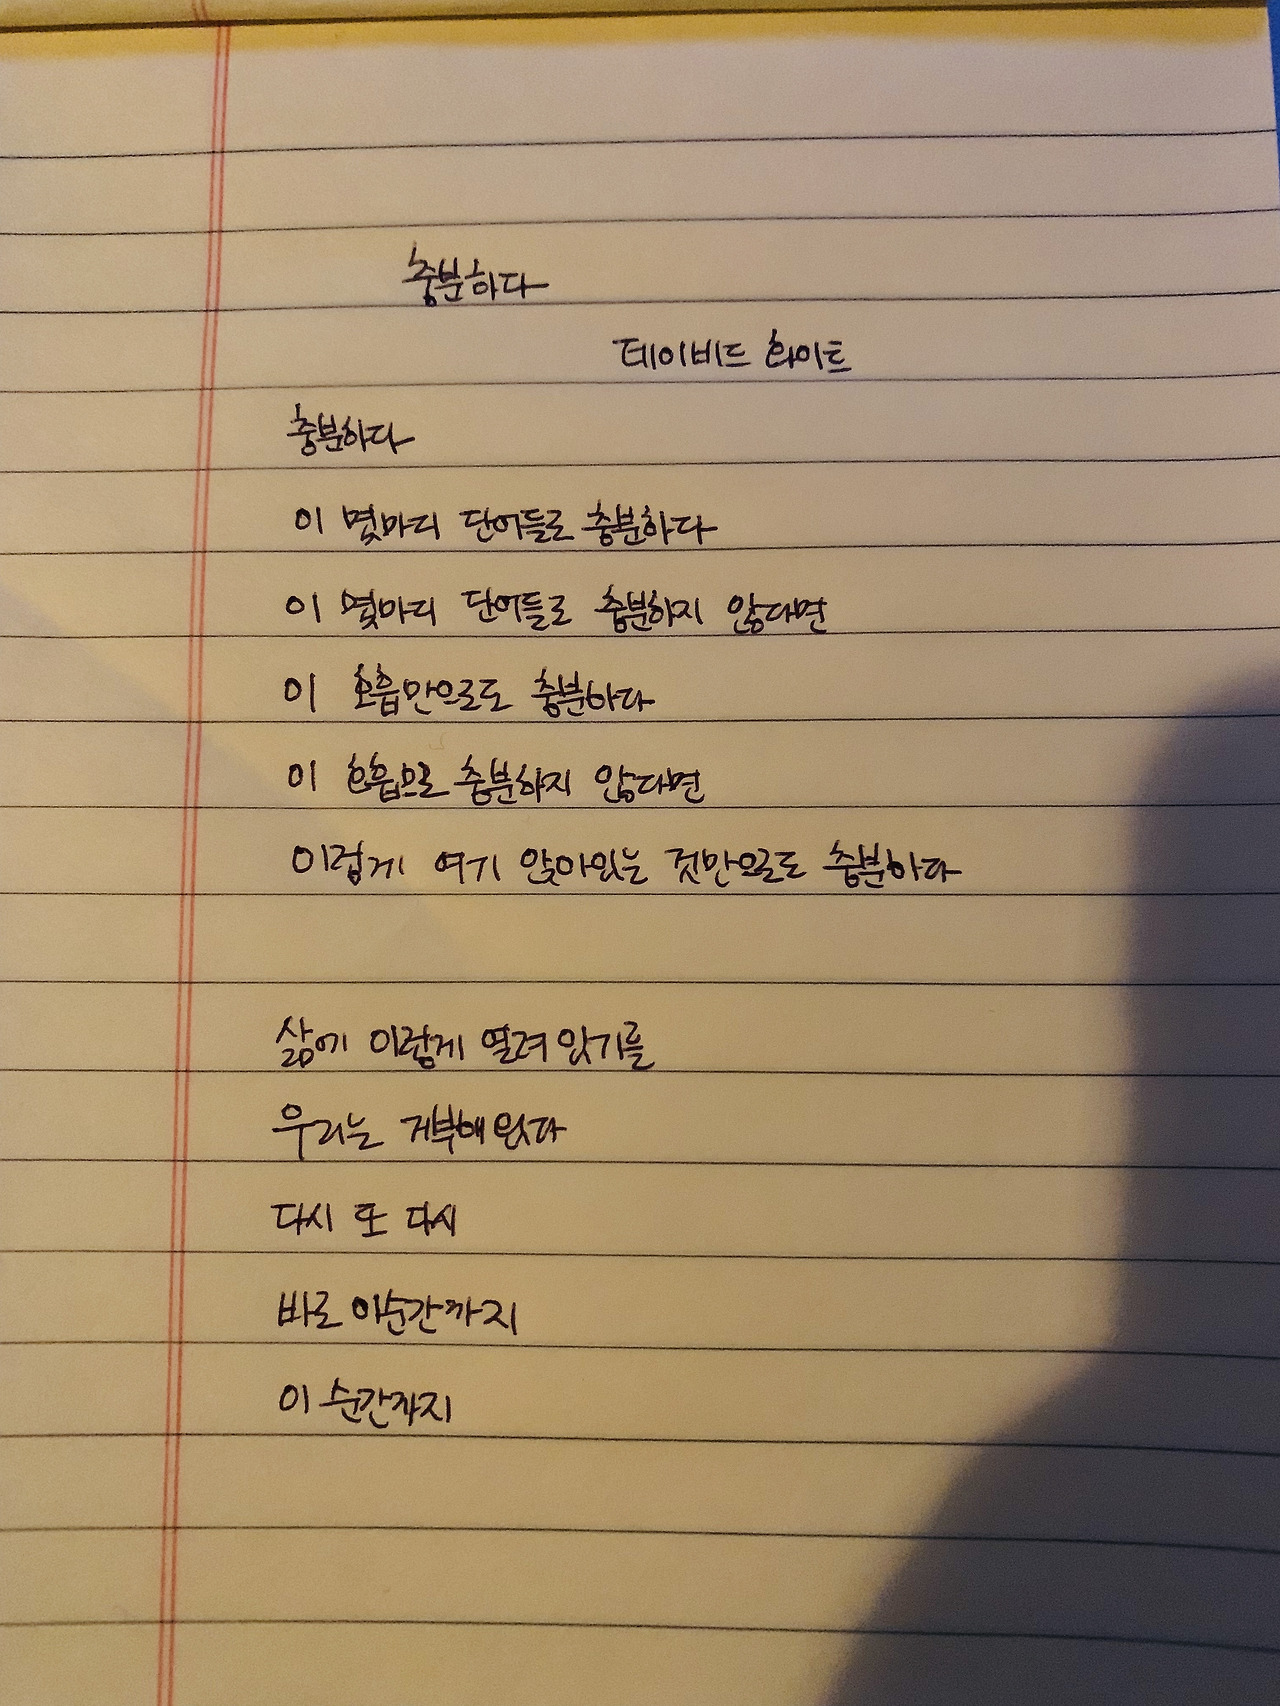 충분하다
데이비드 화이트
충분하다
이 몇마디 단어들로 충분하다
이 몇마디 단어들로 충분하지 않다면
이 호흡만으로도 충분하다
이 호흡으로 충분하지 않다면
이렇게 여기 앉아있는 것만으로도 충분하다
삶에 이렇게 열려 있기를
우리는 거부해 왔다
다시 또 다시
바로 이순간까지
이 순간까지